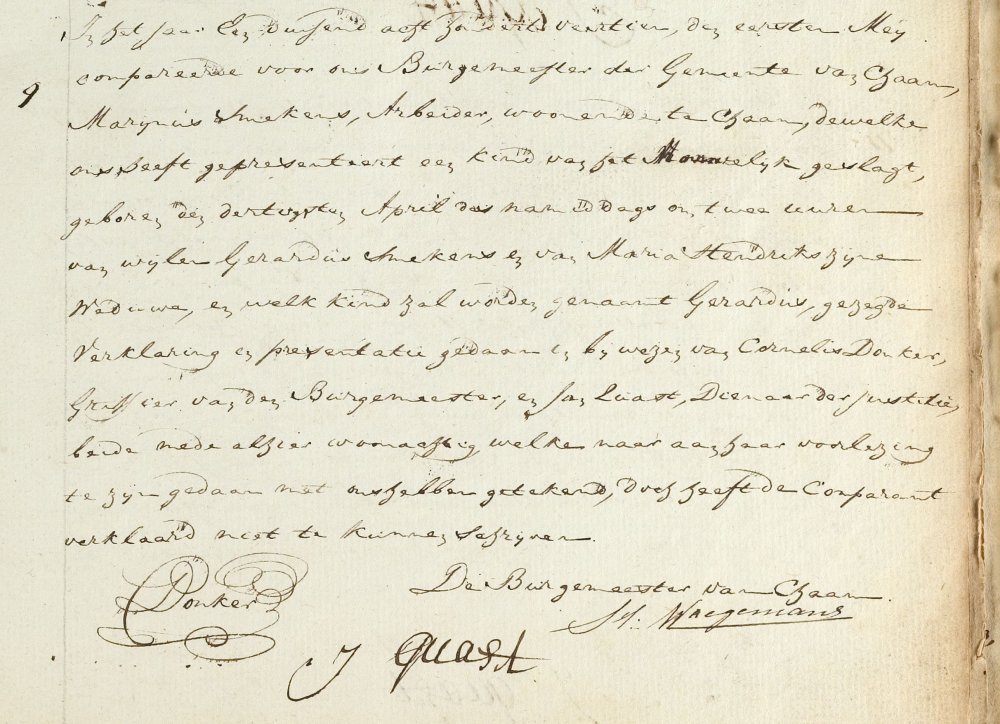 In het jaar Een duysend acht hondert veertien, den eersten Mey
compareerde voor ons Burgemeester der Gemeente van Chaam,
9
Marynus Smekens, Arbeider, woonende te Chaam, dewelke
ons heeft gepresenteert een kind van het Mannelyk geslagt,
geboren den dertigsten April des namiddags om twee uuren
van wylen Gerardus Smekens en van Maria Hendriks zyne
Weduwe, en welk kind zal worden genaamt Gerardus, gezegde
Verklaring en presentatie gedaan in by wezen van Cornelis Donker,
Griffier van den Burgemeester, en Jan Quast, Dienaar der Justitie,
beide mede alhier woonachtig welke naar aan haar voorlezing
te zyn gedaan met ons hebben getekend, doch heeft de Comparant
verklaard niet te kunnen schryven.
De Burgemeester van Chaam
Donker
Wregemans
J Quast